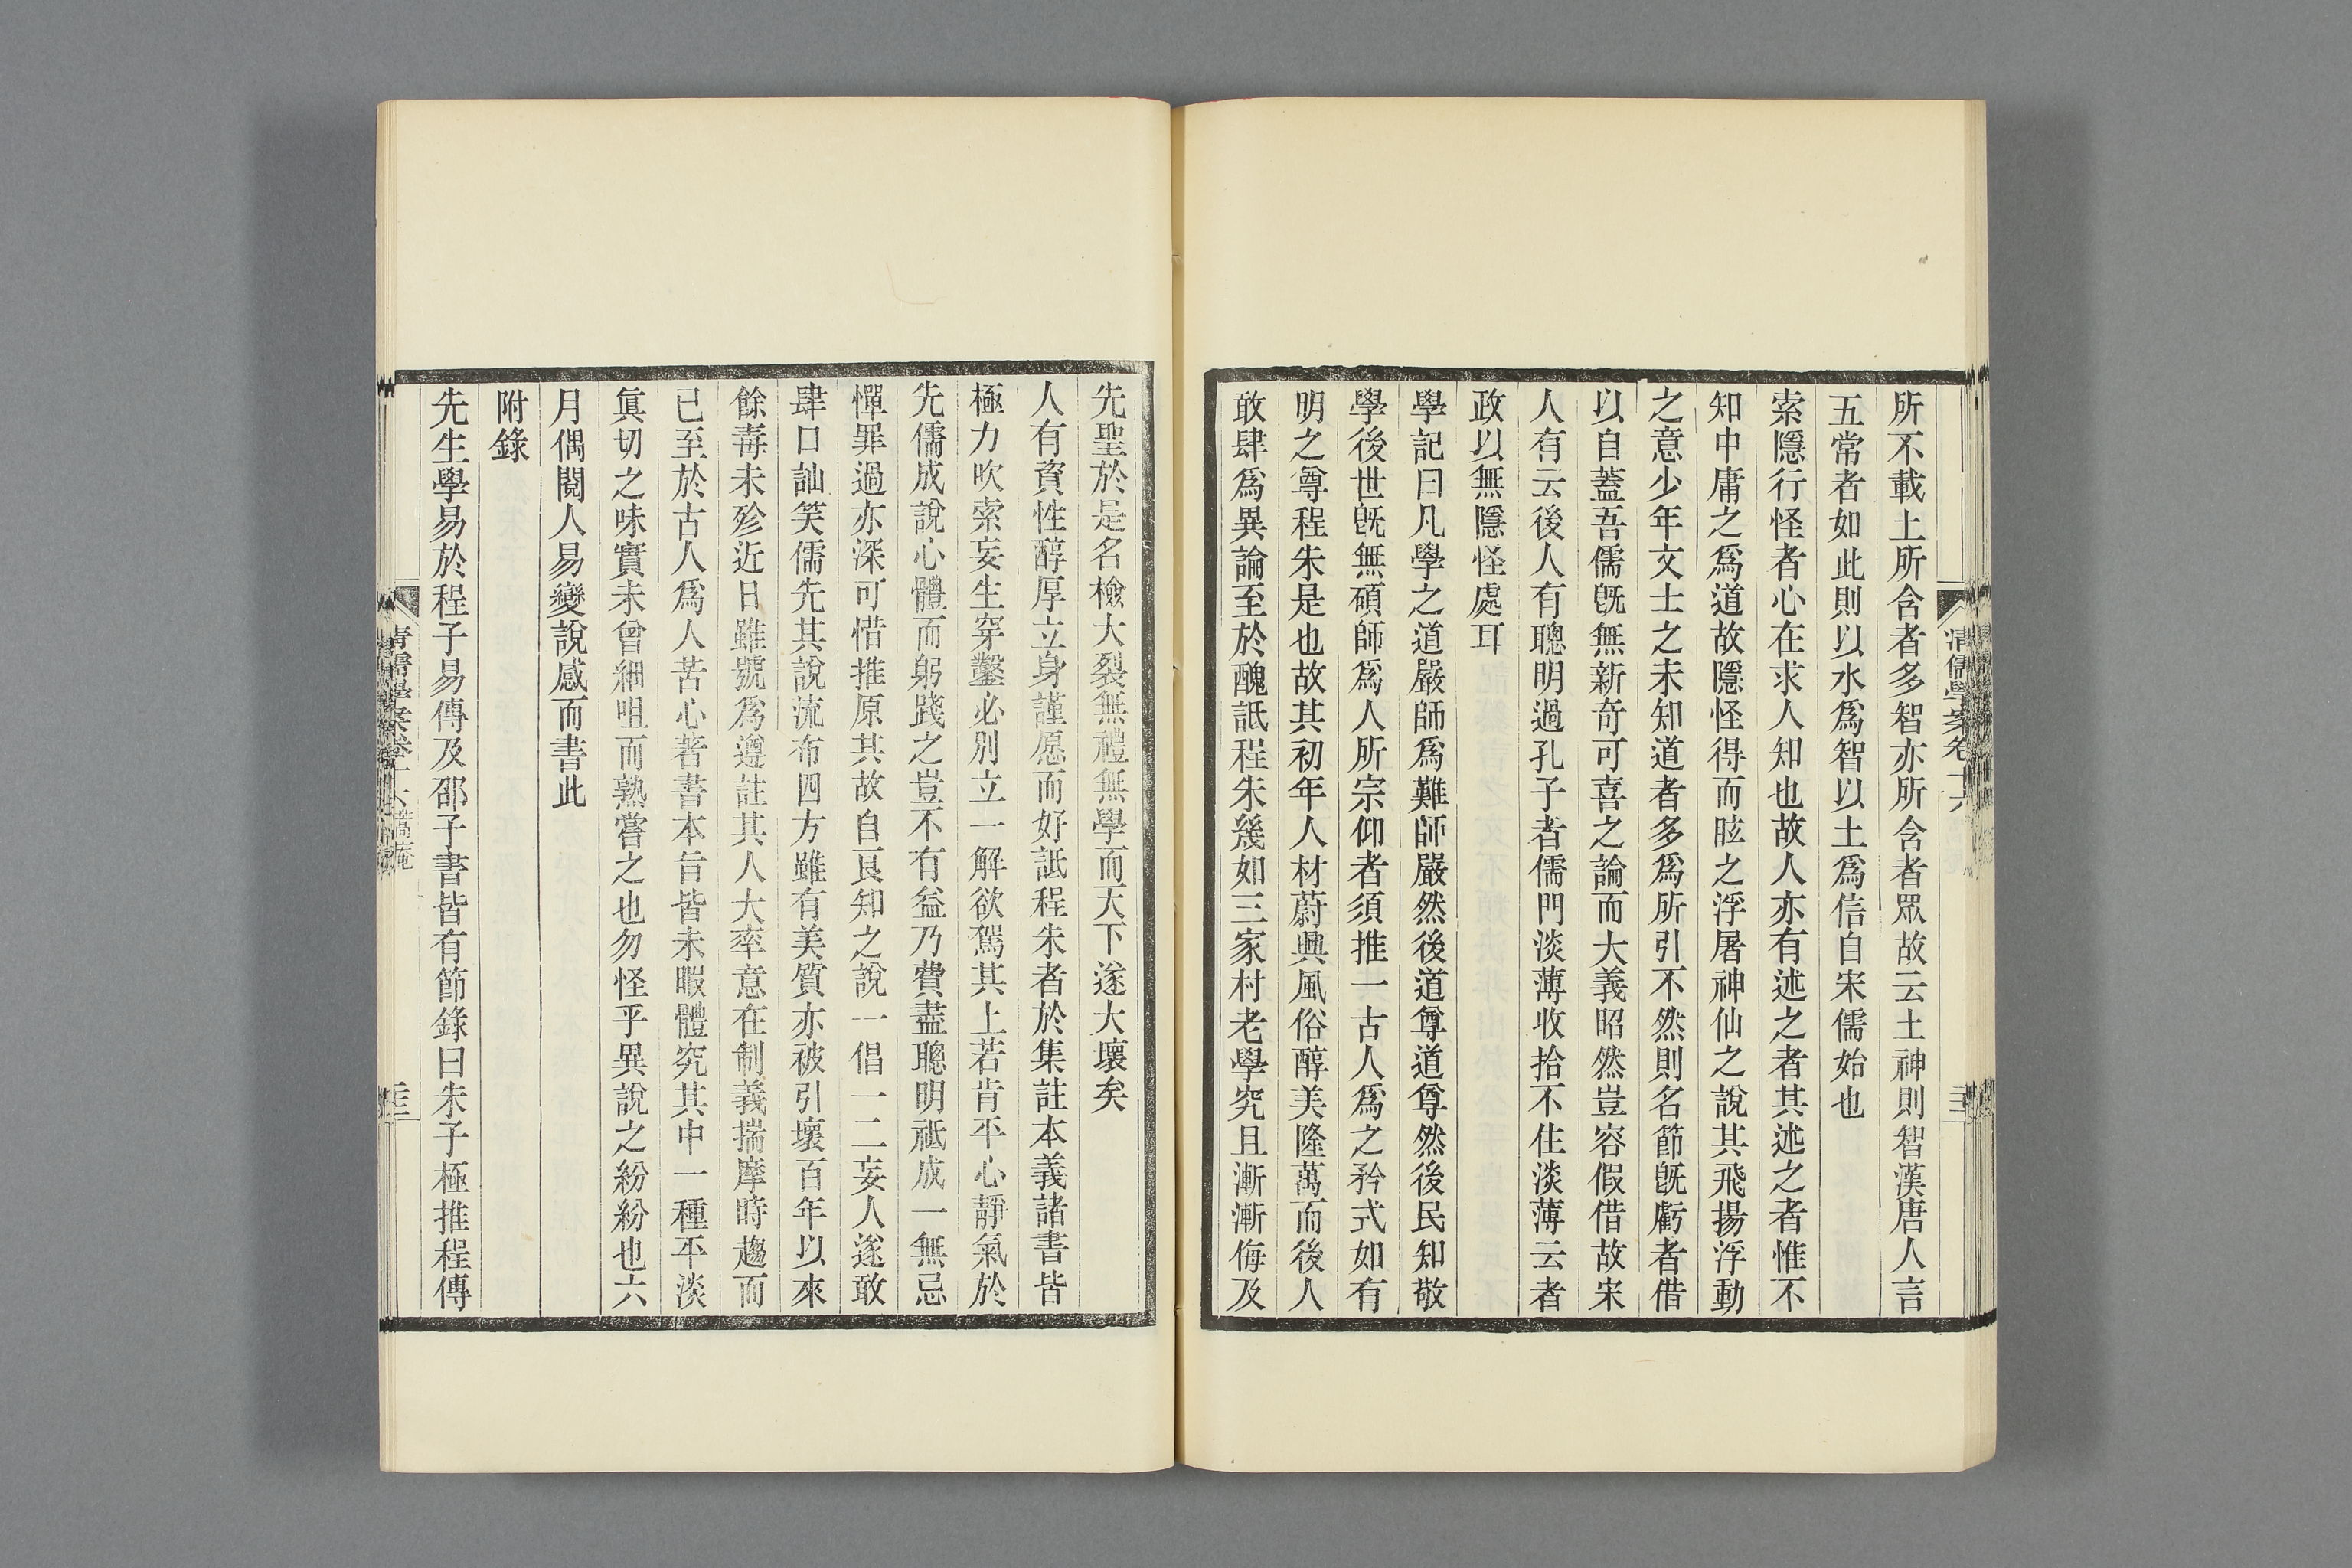 所不載土所含者多智亦所含者眾故云土神則智漢唐人言
五常者如此則以水爲智以土爲信自宋儒始也
索隱行怪者心在求人知也故人亦有述之者其述之者惟不
知中庸之爲道故隱怪得而眩之浮屠神仙之說其飛揚浮動
之意少年文士之未知道者多爲所引不然則名節旣虧者借
以自蓋吾儒旣無新奇可喜之論而大義昭然豈容假借故宋
人有云後人有聰明過孔子者儒門淡薄收拾不住淡薄云者
政以無隱怪處耳
學記曰凡學之道嚴師爲難師嚴然後道尊道尊然後民知敬
學後世旣無碩師爲人所宗仰者須推一古人爲之矜式如有
明之尊程朱是也故其初年人材蔚興風俗醇美隆萬而後人
敢肆爲異論至於醜詆程朱幾如三家村老學究且漸漸侮及
清儒學案卷十六
先聖於是名檢大裂無禮無學而天下遂大壞矣
人有資性醇厚立身謹愿而好詆程朱者於集註本義諸書皆
極力吹索妄生穿鑿必別立一解欲駕其上若肯平心靜氣於
先儒成說心體而躬踐之豈不有益乃費盡聰明祇成一無忌
憚罪過亦深可惜推原其故自良知之說一倡一二妄人遂敢
肆口訕笑儒先其說流布四方雖有美質亦被引壞百年以來
餘毒未殄近日雖號爲遵註其人大率意在制義揣摩時趨而
已至於古人爲人苦心著書本旨皆未暇體究其中一種平淡
眞切之味實未曾細咀而熟嘗之也勿怪乎異說之紛紛也六
月偶閱人易變說感而書此
附錄
先生學易於程子易傳及邵子書皆有節錄曰朱子極推程傳